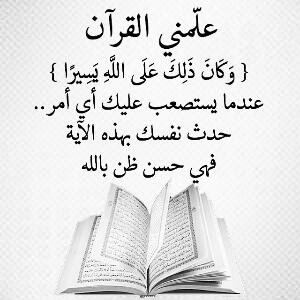 علّمني القرآن
{ وَكَانَ ذَلِكَ عَلَى اللَّهِ يَسِيرًا }
عندما يستصعب عليك أي أمر..
حدث نفسك بهذه الآية
فهي حسن ظن بالله